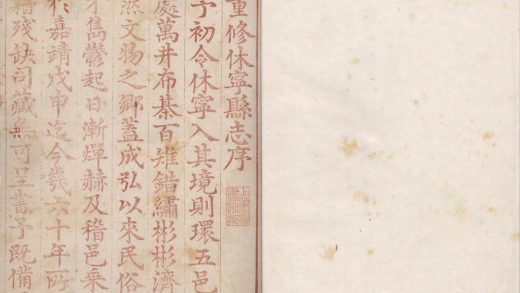 重修休寧縣志序
予初令休寧入其境則環五邑
處萬井布棊百雉錯繡彬彬濟
然文物之鄉蓋成弘以來民俗
才雋鬱起日漸燀赫及稽邑乘
於嘉靖戊申迄今幾六十年所
殘缺司藏無可呈書予既備